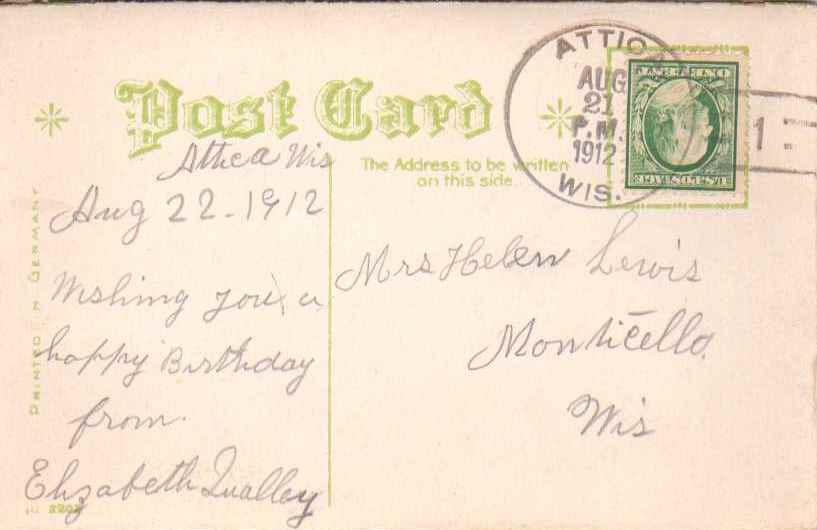 Post Card
ATTICA
AUG
21
P.M.
1912
WIS.
1
The Address to be written
on this side.
Attica Wis
Aug 22-1912
Wishing you a
happy Birthday
from.
Elizabeth Qualley
Mrs Helen Lewis
Monticello.
Wis
PRINTED IN GERMANY